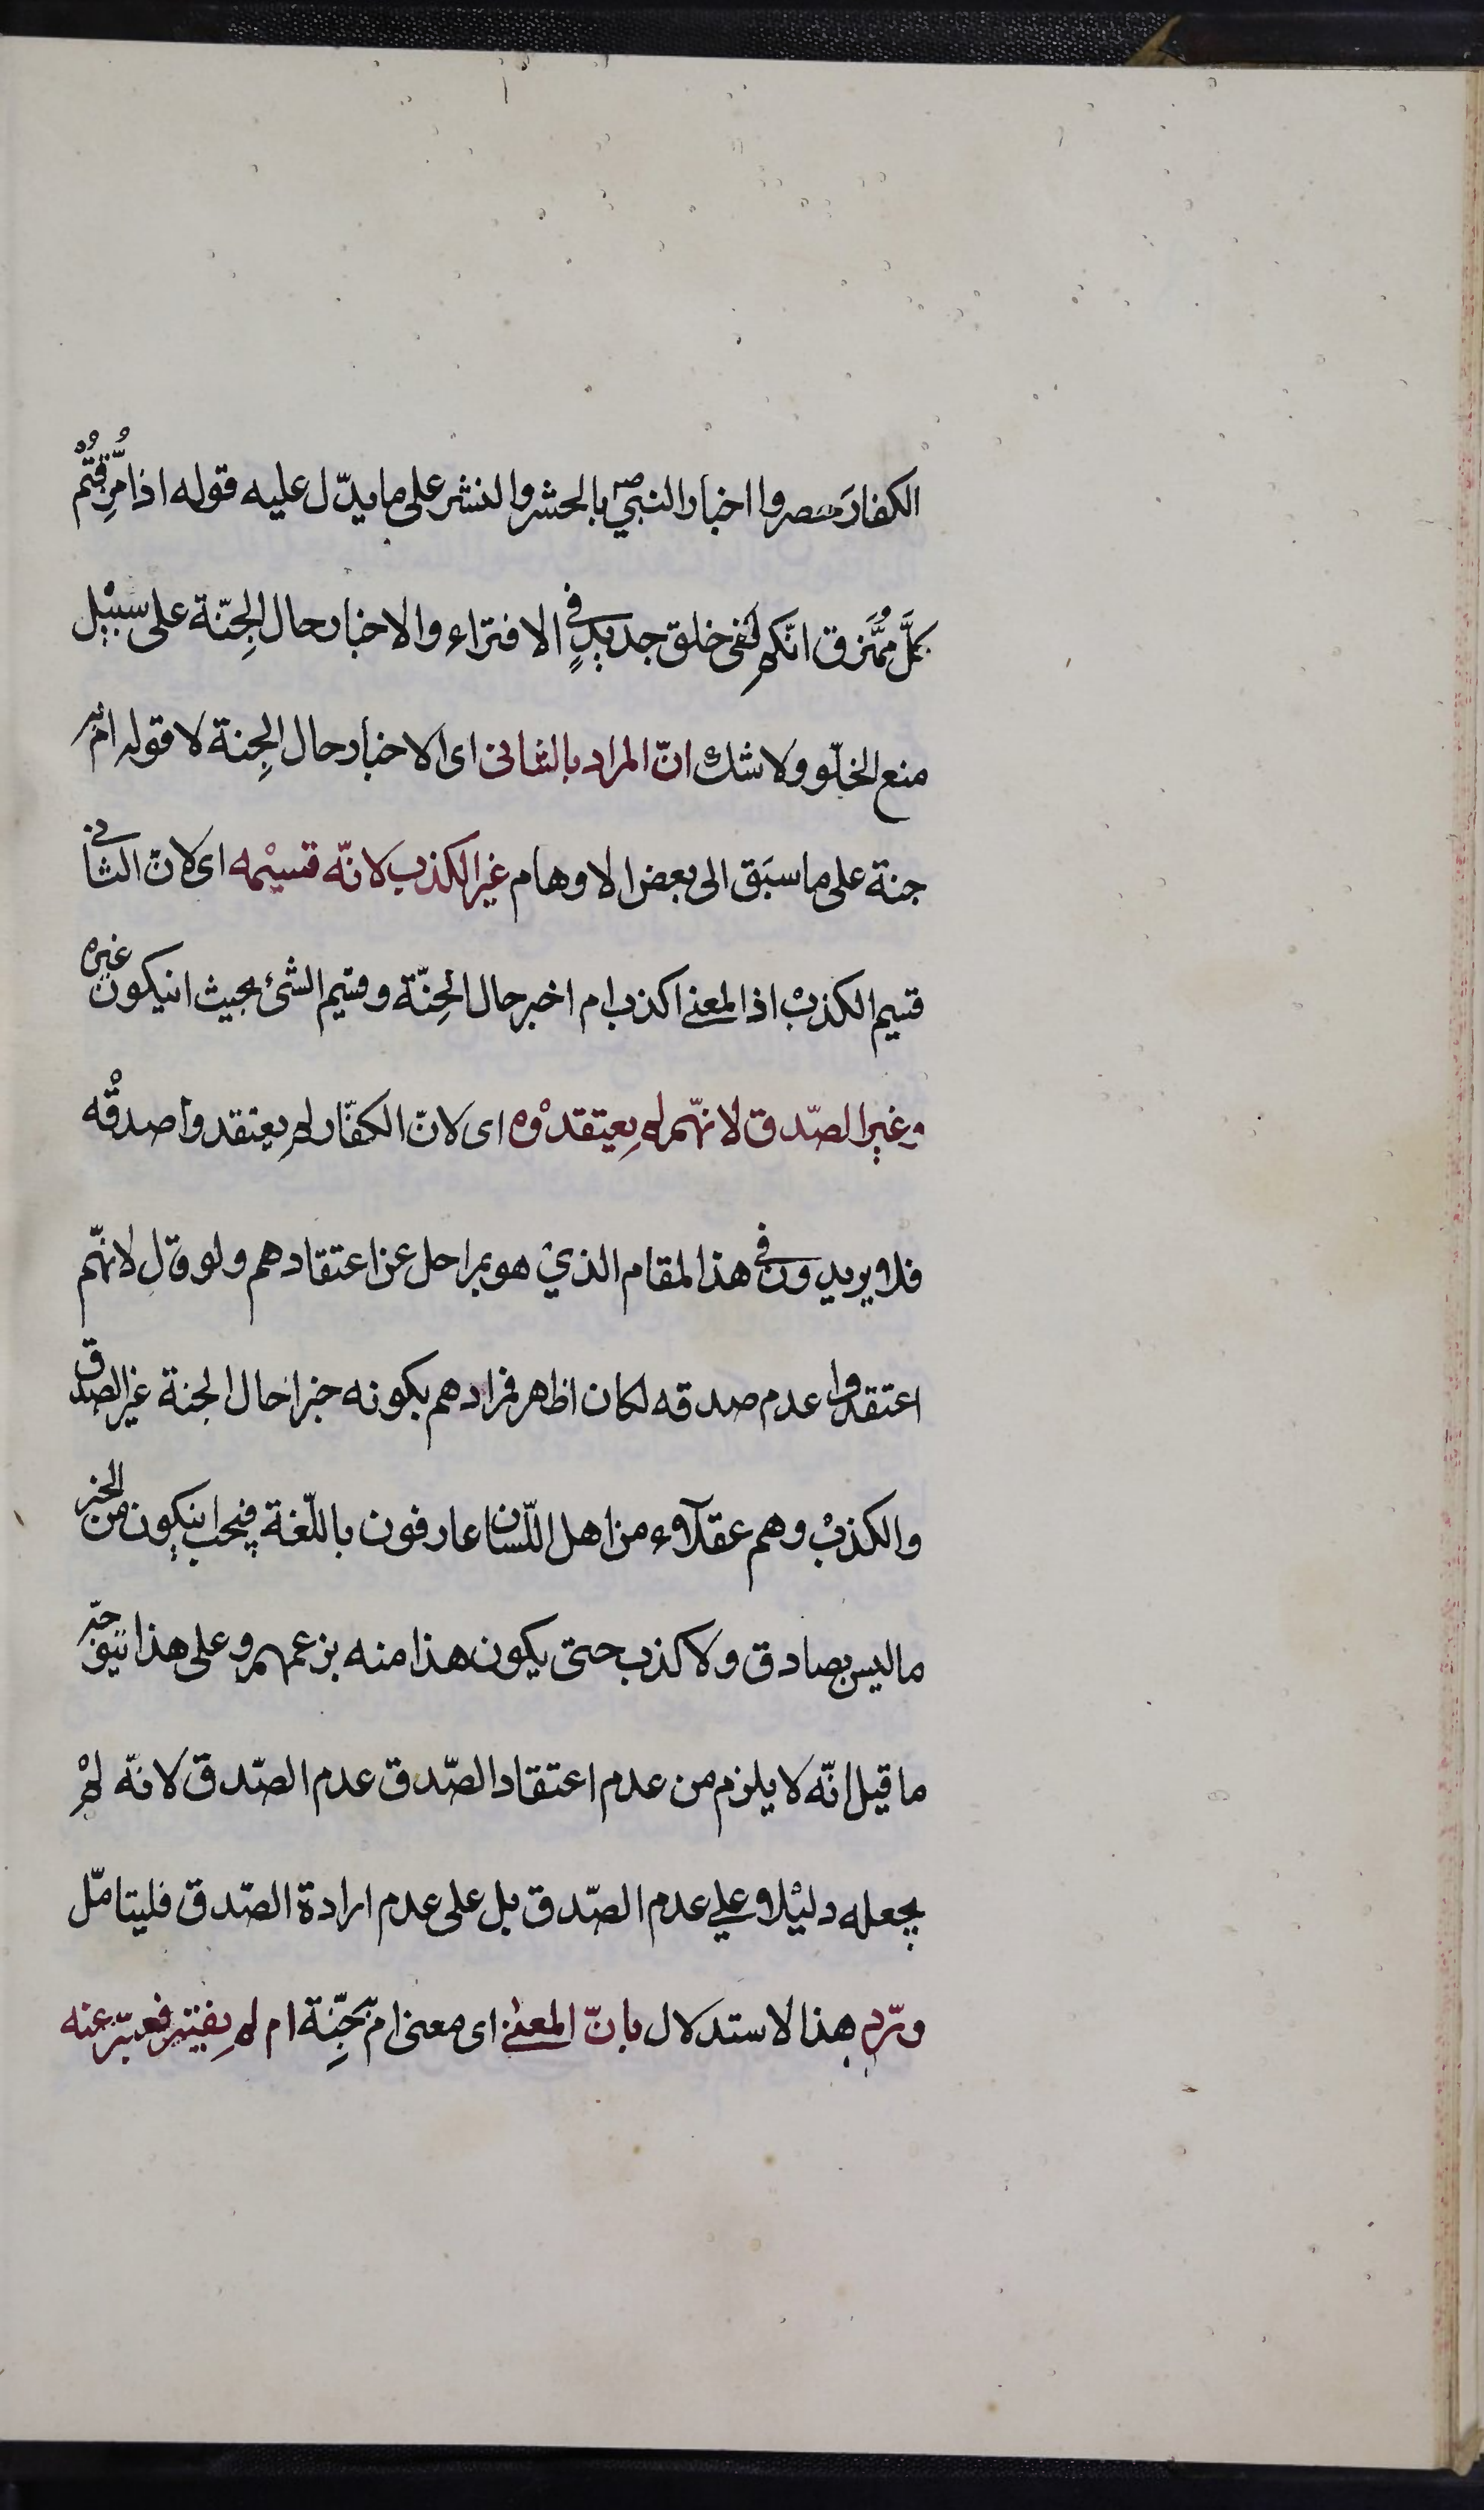 الكفار حصروا اخبار النبي ص بالحشر والنشر على ما يدّل عليه قوله اذا مُزِّقتُم
كلَّ مُمَّزق انّكم لفى خلق جديدٍ في الافتراء والاخبار حال الجِنّة على سبيْل
منع الخلّو ولا شك انّ المراد بالثانى اى الاخبار حال الجِنة لا قوله ام به
جنة على ما سبَق الى بعض الاوهام غير الكذب لانّه قسيْمه اى لانّ الثانى
قسيم الكذبْ اذ المعنى اكذب ام اخبر حال الجِنّة وقسيم الشئ يجيث انيكون غيره
وغير الصّدق لانّهم لم يعتقدْوه اى لانّ الكفّار لم يعتقدوا صدقْه
فلا يريدون في هذا المقام الذيْ هو بمراحل عن اعتقادهم ولو قال لانّهم
اعتقدوا عدم صدقه لكان اظهر فمرادهم بكونه خبرا حال الجنة غير الصدق
والكذبْ وهم عقلاء من اهل اللّسان عارفون باللّغة فيجب انيكون من الخبر
ما ليس بصادق ولا كذب حتى يكون هذا منه بزعمهم وعلى هذا يتوجّه
ما قيل انّه لا يلزم من عدم اعتقاد الصّدق عدم الصّدق لانّه لمْ
يجعله دليْلا علي عدم الصّدق بل على عدم ارادة الصّدق فليتامّل
وردّ هذا الاستدلال بانّ المعنى اى معنى ام به جِنّة ام لم يفتر فعبّر عنه